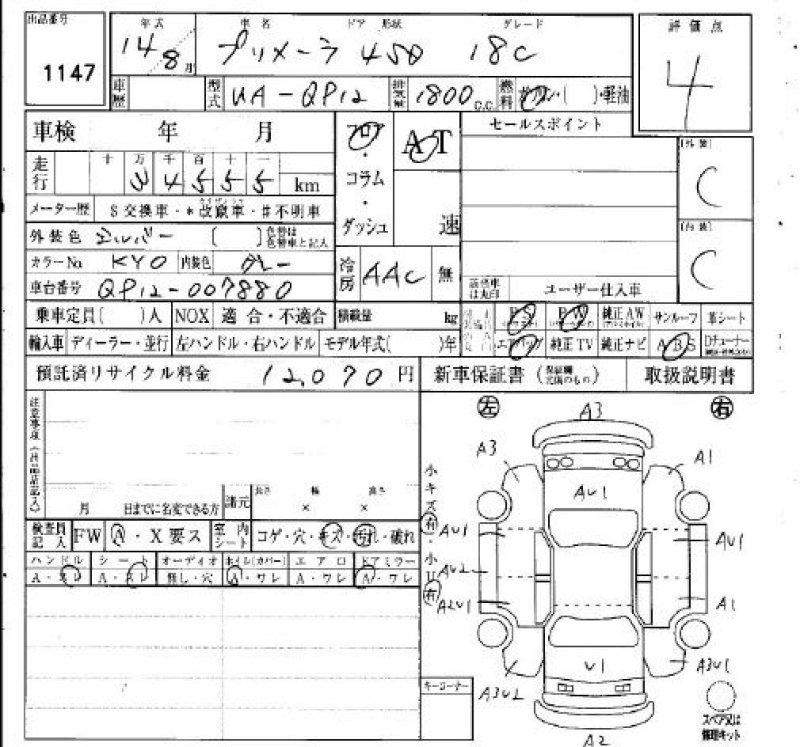 出品番号 年式 車名 ドア 形状 グレード 評価点
1147 14 8 月 プリメーラ 4SD 18C 4
車歴 型式 UA-QP12 排気量 1800 C.C. 燃料 ガソリン・( )・軽油
車検 年 月 フロア・コラム・ダッシュ AT 速 セールスポイント 外装 C
走行 十 万 千 百 十 一
3 4 5 5 5 km
メーター歴 S 交換車・* 改竄車・# 不明車 内装 C
外装色 シルバー ( ) 色替は色替車と記入
カラーNo. KY0 内装色 グレー 冷房 AAC 無
車台番号 QP12-007880 該当車は丸印 ユーザー仕入車
乗車定員( )人 NOX 適合・不適合 積載量 kg PS PW 純正AW サンルーフ 革シート
輸入車 ディーラー・並行 左ハンドル・右ハンドル モデル年式( )年 エアバッグ 純正TV 純正ナビ ABS Dチューナー
預託済リサイクル料金 12,070 円 新車保証書 (保証欄記載のもの) 取扱説明書
注意事項(出品店記入)
月 日までに名変できる方 諸元 長さ × 幅 × 高さ
検査員記入 FW A・X要ス 室内シート コゲ・穴・キズ・汚れ・破れ
ハンドル シート オーディオ ホイル(カバー) エアロ ドアミラー
A・スレ A・スレ 無し・穴 A・ワレ A・ワレ A・ワレ
左 A3 右
A3 A1
小キズ 有・小U 有
AU1
AU1 AU1
AU2
A2U1 A1
U1
A3U2 A3U1
キーコーナー
A2
スペア又は
修理キット